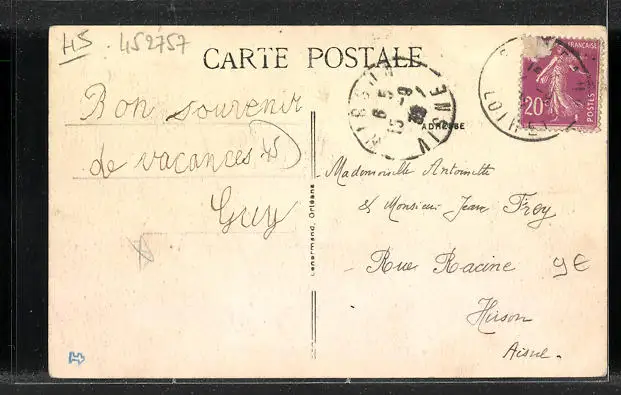 HS 452757
CARTE POSTALE
Bon souvenir
de vacances
Guy
Lenormand, Orléans
ADRESSE
Mademoiselle Antoinette
et Monsieur Jean Frey
Rue Racine
9€
Hirson
Aisne.
HIRSON
AISNE
15 -9
LOIRET
FRANÇAISE
20
POSTES